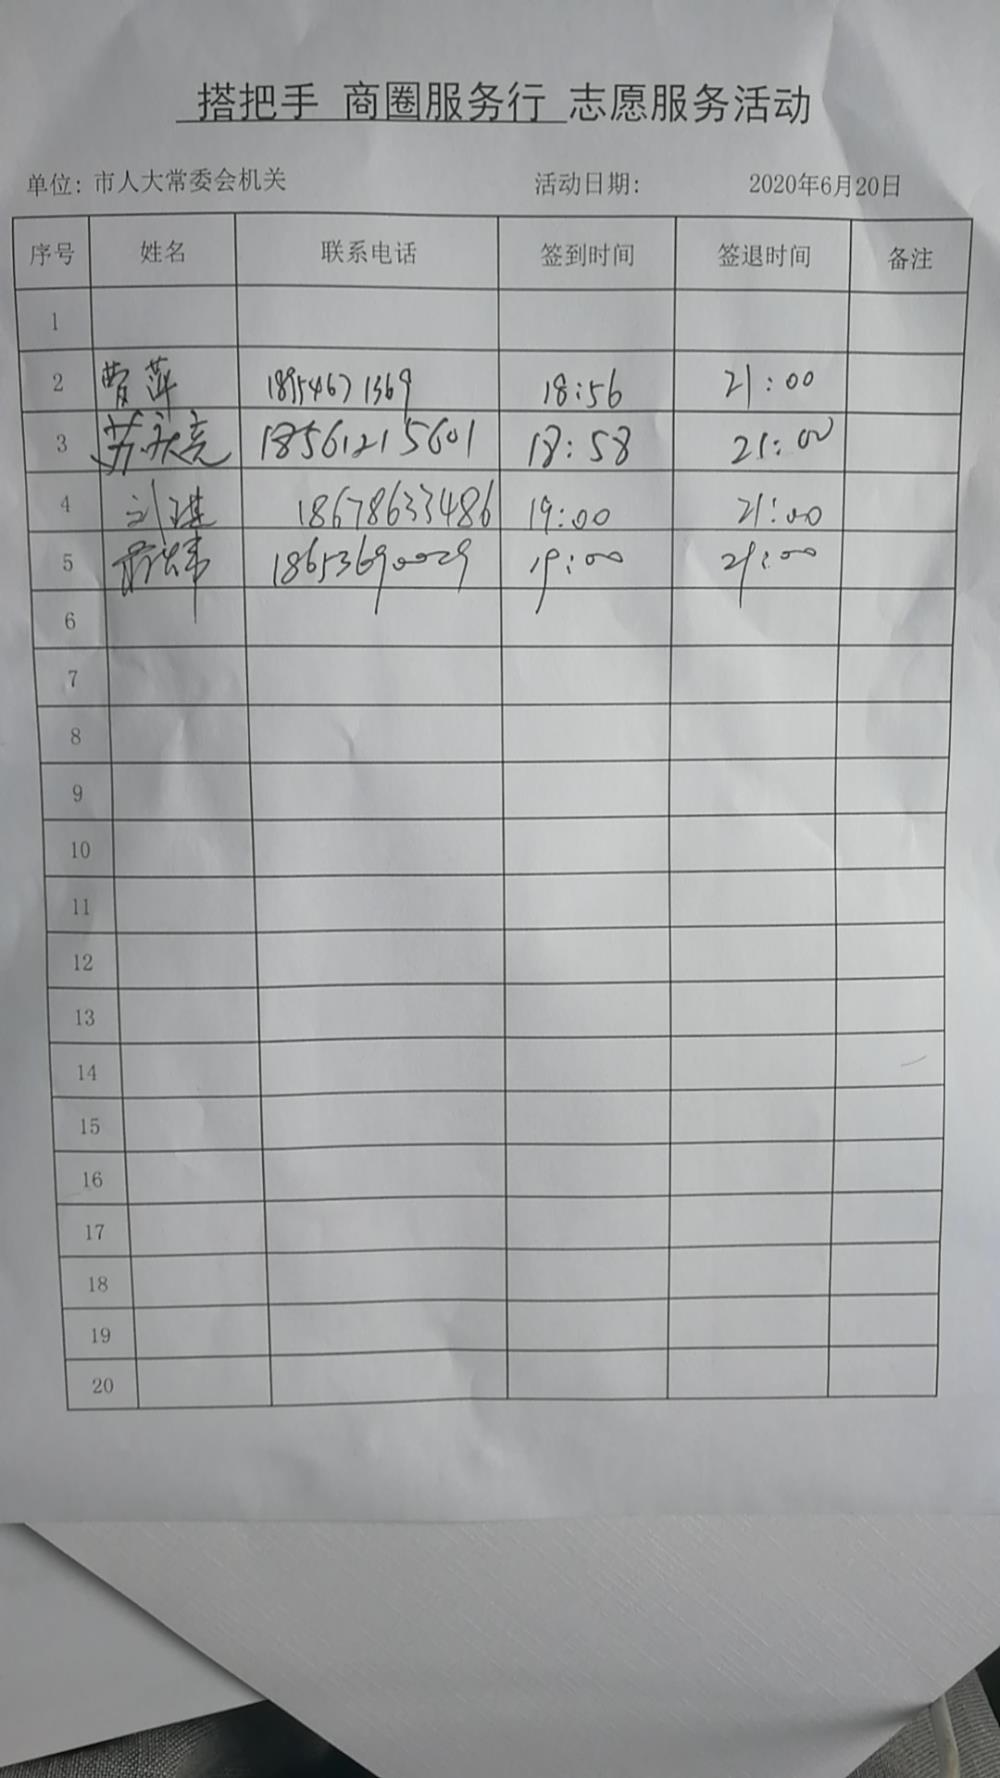 搭把手 商圈服务行 志愿服务活动
单位：市人大常委会机关 活动日期： 2020年6月20日
序号 姓名 联系电话 签到时间 签退时间 备注
1
2 曹萍 18954671369 18:56 21:00
3 苏庆亮 18561215601 18:58 21:00
4 刘琪 18678633486 19:00 21:00
5 18653690029 19:00 21:00
6
7
8
9
10
11
12
13
14
15
16
17
18
19
20